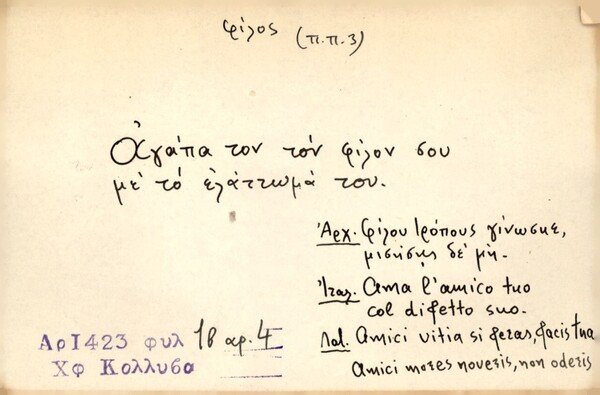 φίλος (π.π.3)
Ἀγάπα τον τόν φίλον σου
μέ τό ἐλάττωμά του.
Ἀρχ. φίλου τρόπους γίνωσκε,
μισήσῃς δέ μή.
Ἰταλ. Ama l'amico tuo
col difetto suo.
Λατ. Amici vitia si feras, facis tua
Amici mores noveris, non oderis
Αρ1423 φυλ 18 αρ. 4
Χφ Κολλυβα